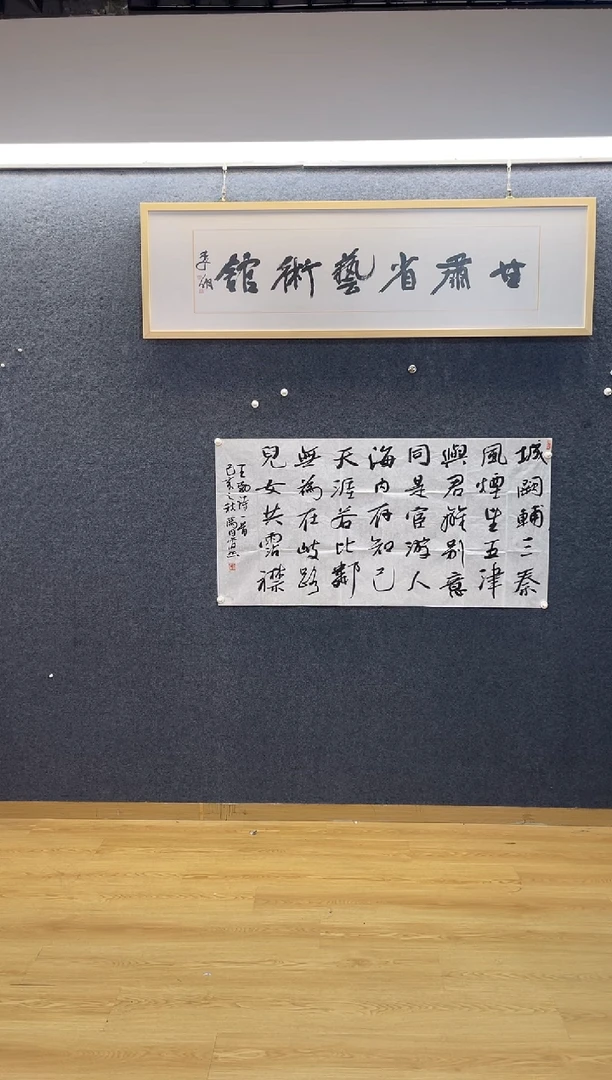 甘肅省藝術館
城闕輔三秦
風煙望五津
與君離別意
同是宦遊人
海内存知己
天涯若比鄰
無為在歧路
兒女共霑襟
王勃詩一首
己亥之秋